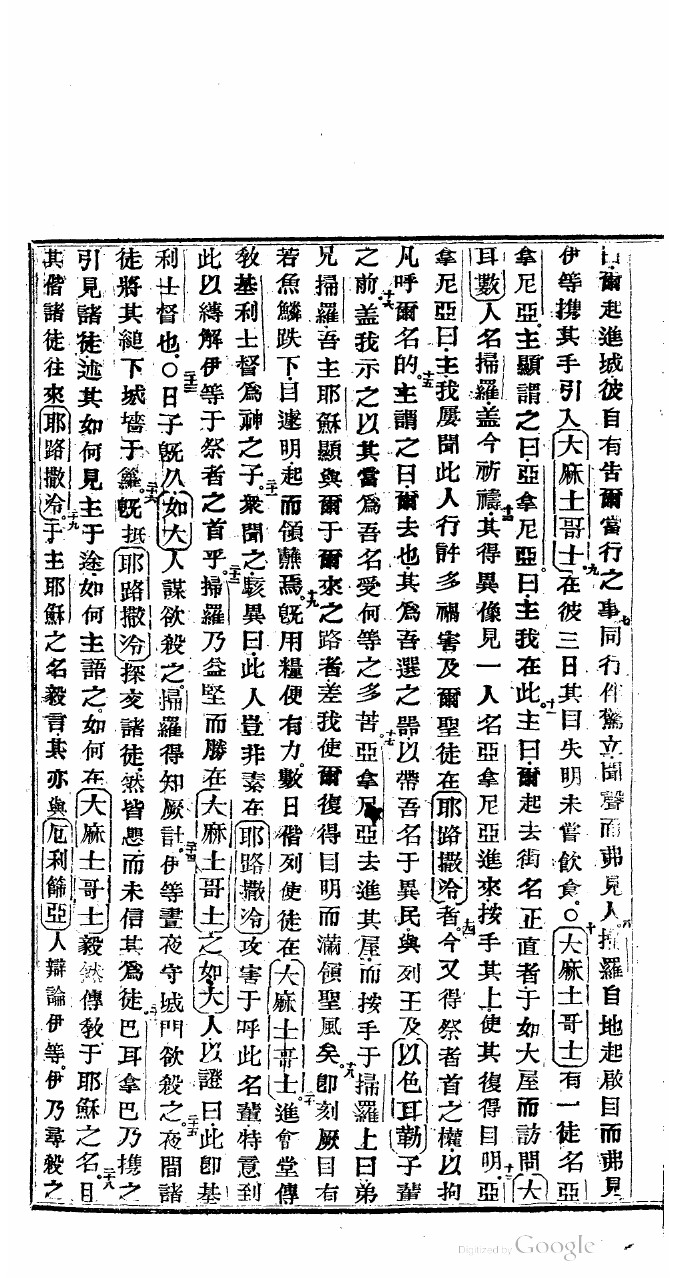 曰爾起進城彼自有告爾當行之事七同行伴驚立聞聲而弗見人八掃羅自地起厥目而弗見
伊等携其手引入大麻士哥士九在彼三日其目失明未嘗飲食○十大麻士哥士有一徒名亞
拿尼亞主顯謂之曰亞拿尼亞曰主我在此十一主曰爾起去街名正直者于如大屋而訪問大
耳數人名掃羅蓋今祈禱十二其得異像見一人名亞拿尼亞進來按手其上使其復得目明十三亞
拿尼亞曰主我屢聞此人行許多禍害及爾聖徒在耶路撒冷者十四今又得祭者首之權以拘
凡呼爾名的十五主謂之曰爾去也其為吾選之器以帶吾名于異民與列王及以色耳勒子輩
之前十六蓋我示之以其當為吾名受何等之多苦十七亞拿尼亞去進其屋而按手于掃羅上曰弟
兄掃羅吾主耶穌顯與爾于爾來之路者差我使爾復得目明而滿領聖風矣十八即刻厥目有
若魚鱗跌下目遂明起而領蘸焉十九旣用糧便有力數日偕列使徒在大麻士哥士二十進會堂傳
敎基利士督為神之子二十一衆聞之駭異曰此人豈非素在耶路撒冷攻害于呼此名輩特意到
此以縳解伊等于祭者之首乎二十二掃羅乃益堅而勝在大麻士哥士之如大人以證曰此即基
利士督也○二十三日子旣久如大人謀欲殺之掃羅得知厥計二十四伊等晝夜守城門欲殺之二十五夜間諸
徒將其縋下城墻于籮二十六旣抵耶路撒冷探交諸徒然皆懼而未信其為徒二十七巴耳拿巴乃携之
引見諸徒述其如何見主于途如何主語之如何在大麻士哥士毅然傳敎于耶穌之名二十八且
其偕諸徒往來耶路撒冷二十九于主耶穌之名毅言其亦與厄利篩亞人辯論伊等伊乃尋殺之
Digitized by Google